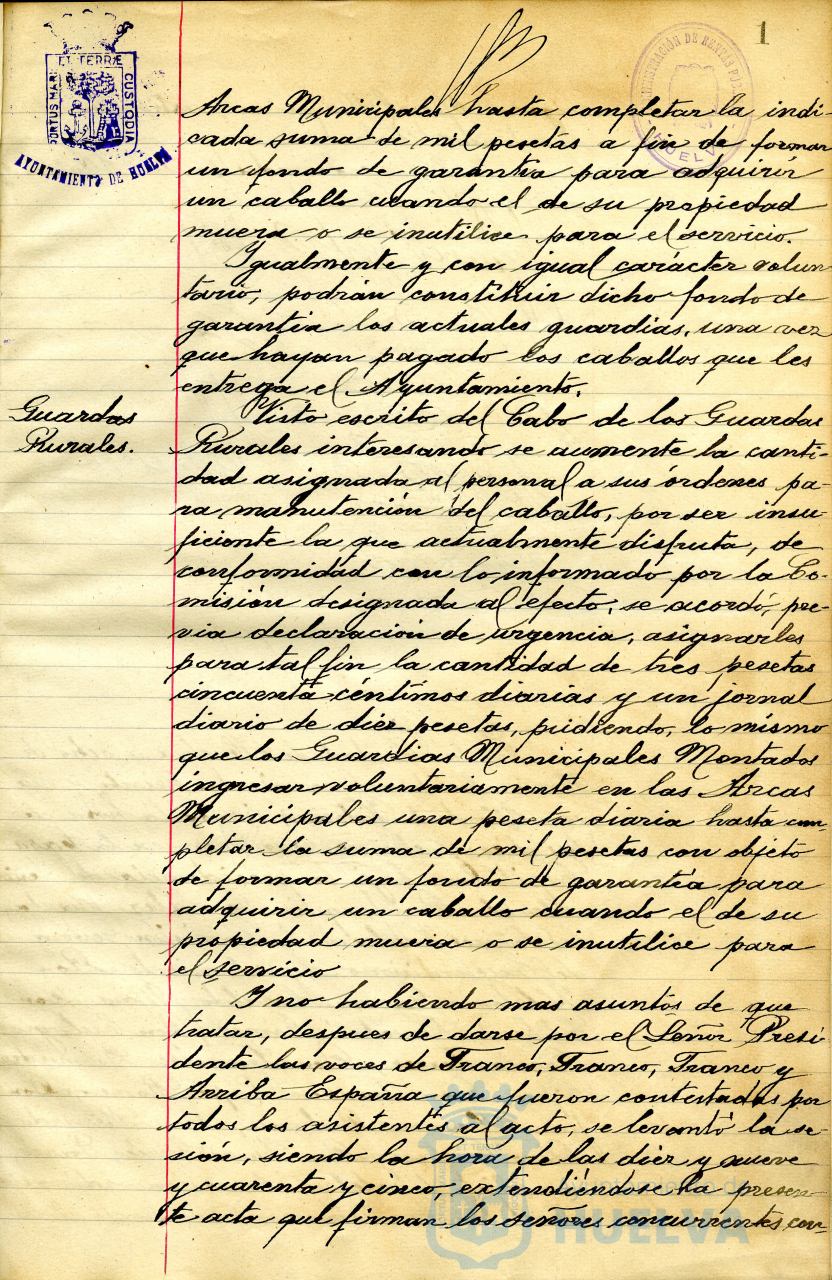 1
PORTUS MARIS
ET TERRÆ
CUSTODIA
AYUNTAMIENTO DE HUELVA
HUELVA
Arcas Municipales hasta completar la indi-
cada suma de mil pesetas a fin de formar
un fondo de garantia para adquirir
un caballo cuando el de su propiedad
muera o se inutilice para el servicio.
Igualmente y con igual carácter volun-
tario, podrán constituir dicho fondo de
garantia los actuales guardias, una vez
que hayan pagado los caballos que les
entrega el Ayuntamiento.
Guardas
Rurales.
Visto escrito del Cabo de los Guardas
Rurales interesando se aumente la canti-
dad asignada al personal a sus órdenes pa-
ra manutención del caballo, por ser insu-
ficiente la que actualmente disfruta, de
conformidad con lo informado por la Co-
misión designada al efecto, se acordó, pre-
via declaración de urgencia, asignarles
para tal fin la cantidad de tres pesetas
cincuenta céntimos diarias y un jornal
diario de diez pesetas, pudiendo, lo mismo
que los Guardias Municipales Montados
ingresar voluntariamente en las Arcas
Municipales una peseta diaria hasta com-
pletar la suma de mil pesetas con objeto
de formar un fondo de garantía para
adquirir un caballo cuando el de su
propiedad muera o se inutilice para
el servicio
Y no habiendo mas asuntos de que
tratar, despues de darse por el Señor Presi-
dente las voces de Franco, Franco, Franco y
Arriba España que fueron contestadas por
todos los asistentes al acto, se levantó la se-
sión, siendo la hora de las diez y nueve
y cuarenta y cinco, extendiéndose la presen-
te acta que firman los señores concurrentes con-
HUELVA